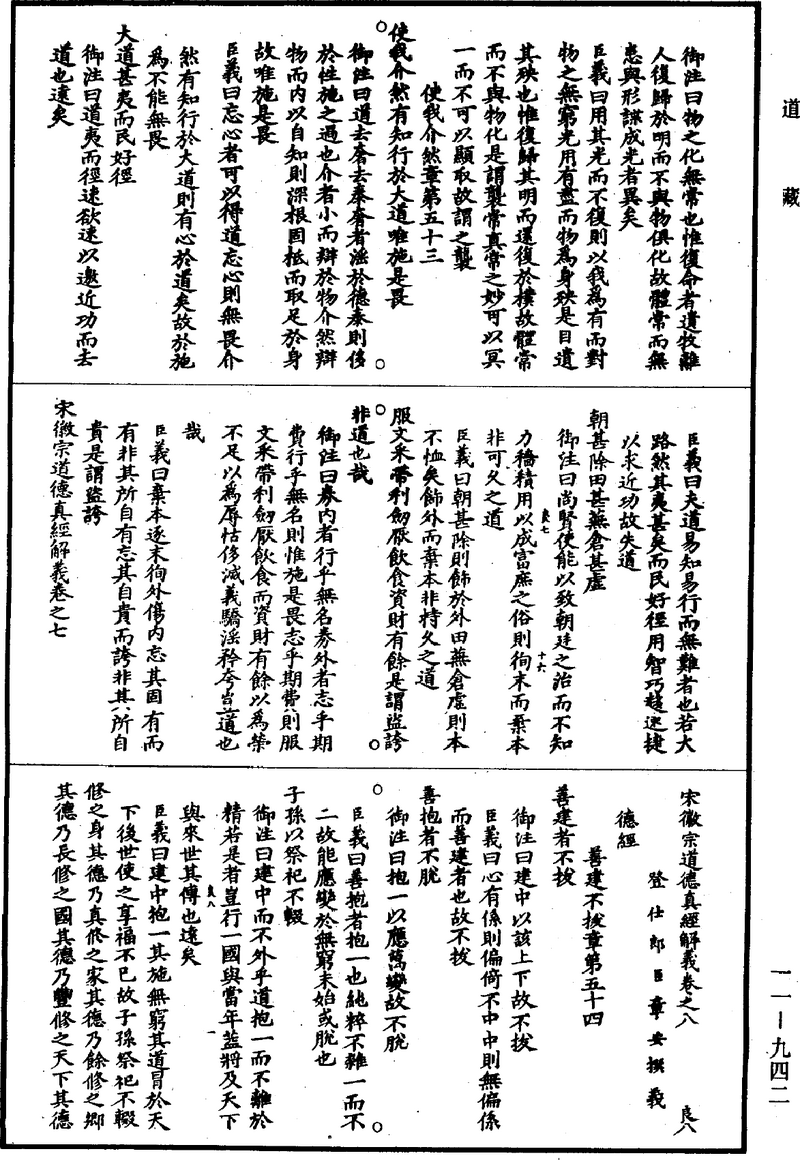 道藏
御注曰物之化無常也惟復命者遺物離
人復歸於明而不與物俱化故體常而無
患與形諜成光者異矣
臣義曰用其光而不復則以我為有而對
物之無窮光用有盡而物為身殃是日遺
其殃也惟復歸其明而還復於樸故體常
而不與物化是謂襲常真常之妙可以冥
一而不可以顯取故謂之襲
使我介然章第五十三
使我介然有知行於大道唯施是畏
御注曰道去奢去泰奢者淫於德泰則侈
於性施之過也介者小而辯於物介然辯
物而內以自知則深根固柢而取足於身
故唯施是畏
臣義曰忘心者可以得道忘心則無畏介
然有知行於大道則有心於道矣故於施
為不能無畏
大道甚夷而民好徑
御注曰道夷而徑速欲速以邀近功而去
道也遠矣
臣義曰夫道易知易行而無難者也若大
路然其夷甚矣而民好徑用智巧趍速捷
以求近功故失道
朝甚除田甚蕪倉甚虛
御注曰尚賢使能以致朝廷之治而不知
力穡積用以成富庶之俗則徇末而棄本
非可久之道
臣義曰朝甚除則飾於外田蕪倉虛則本
不恤矣飾外而棄本非持久之道
服文采帶利劒厭飲食資財有餘是謂盜誇
非道也哉
御注曰券內者行乎無名券外者志乎期
費行乎無名則惟施是畏志乎期費則服
文采帶利劒厭飲食而資財有餘以為榮
不足以為辱怙侈滅義驕淫矜夸豈道也
哉
臣義曰棄本逐末徇外傷內忘其固有而
有非其所自有忘其自貴而誇非其所自
貴是謂盜誇
宋徽宗道德真經解義卷之七
良七
十六
宋徽宗道德真經解義卷之八
良八
登仕郎臣章安撰義
德經
善建不拔章第五十四
善建者不拔
御注曰建中以該上下故不拔
臣義曰心有係則偏倚不中中則無偏係
而善建者也故不拔
善抱者不脫
御注曰抱一以應萬變故不脫
臣義曰善抱者抱一也純粹不雜一而不
二故能應變於無窮未始或脫也
子孫以祭祀不輟
御注曰建中而不外乎道抱一而不離於
精若是者豈行一國與當年蓋將及天下
與來世其傳也遠矣
良八
一
臣義曰建中抱一其施無窮其道冒於天
下後世使之享福不已故子孫祭祀不輟
修之身其德乃真修之家其德乃餘修之鄉
其德乃長修之國其德乃豐修之天下其德
一一—九四二